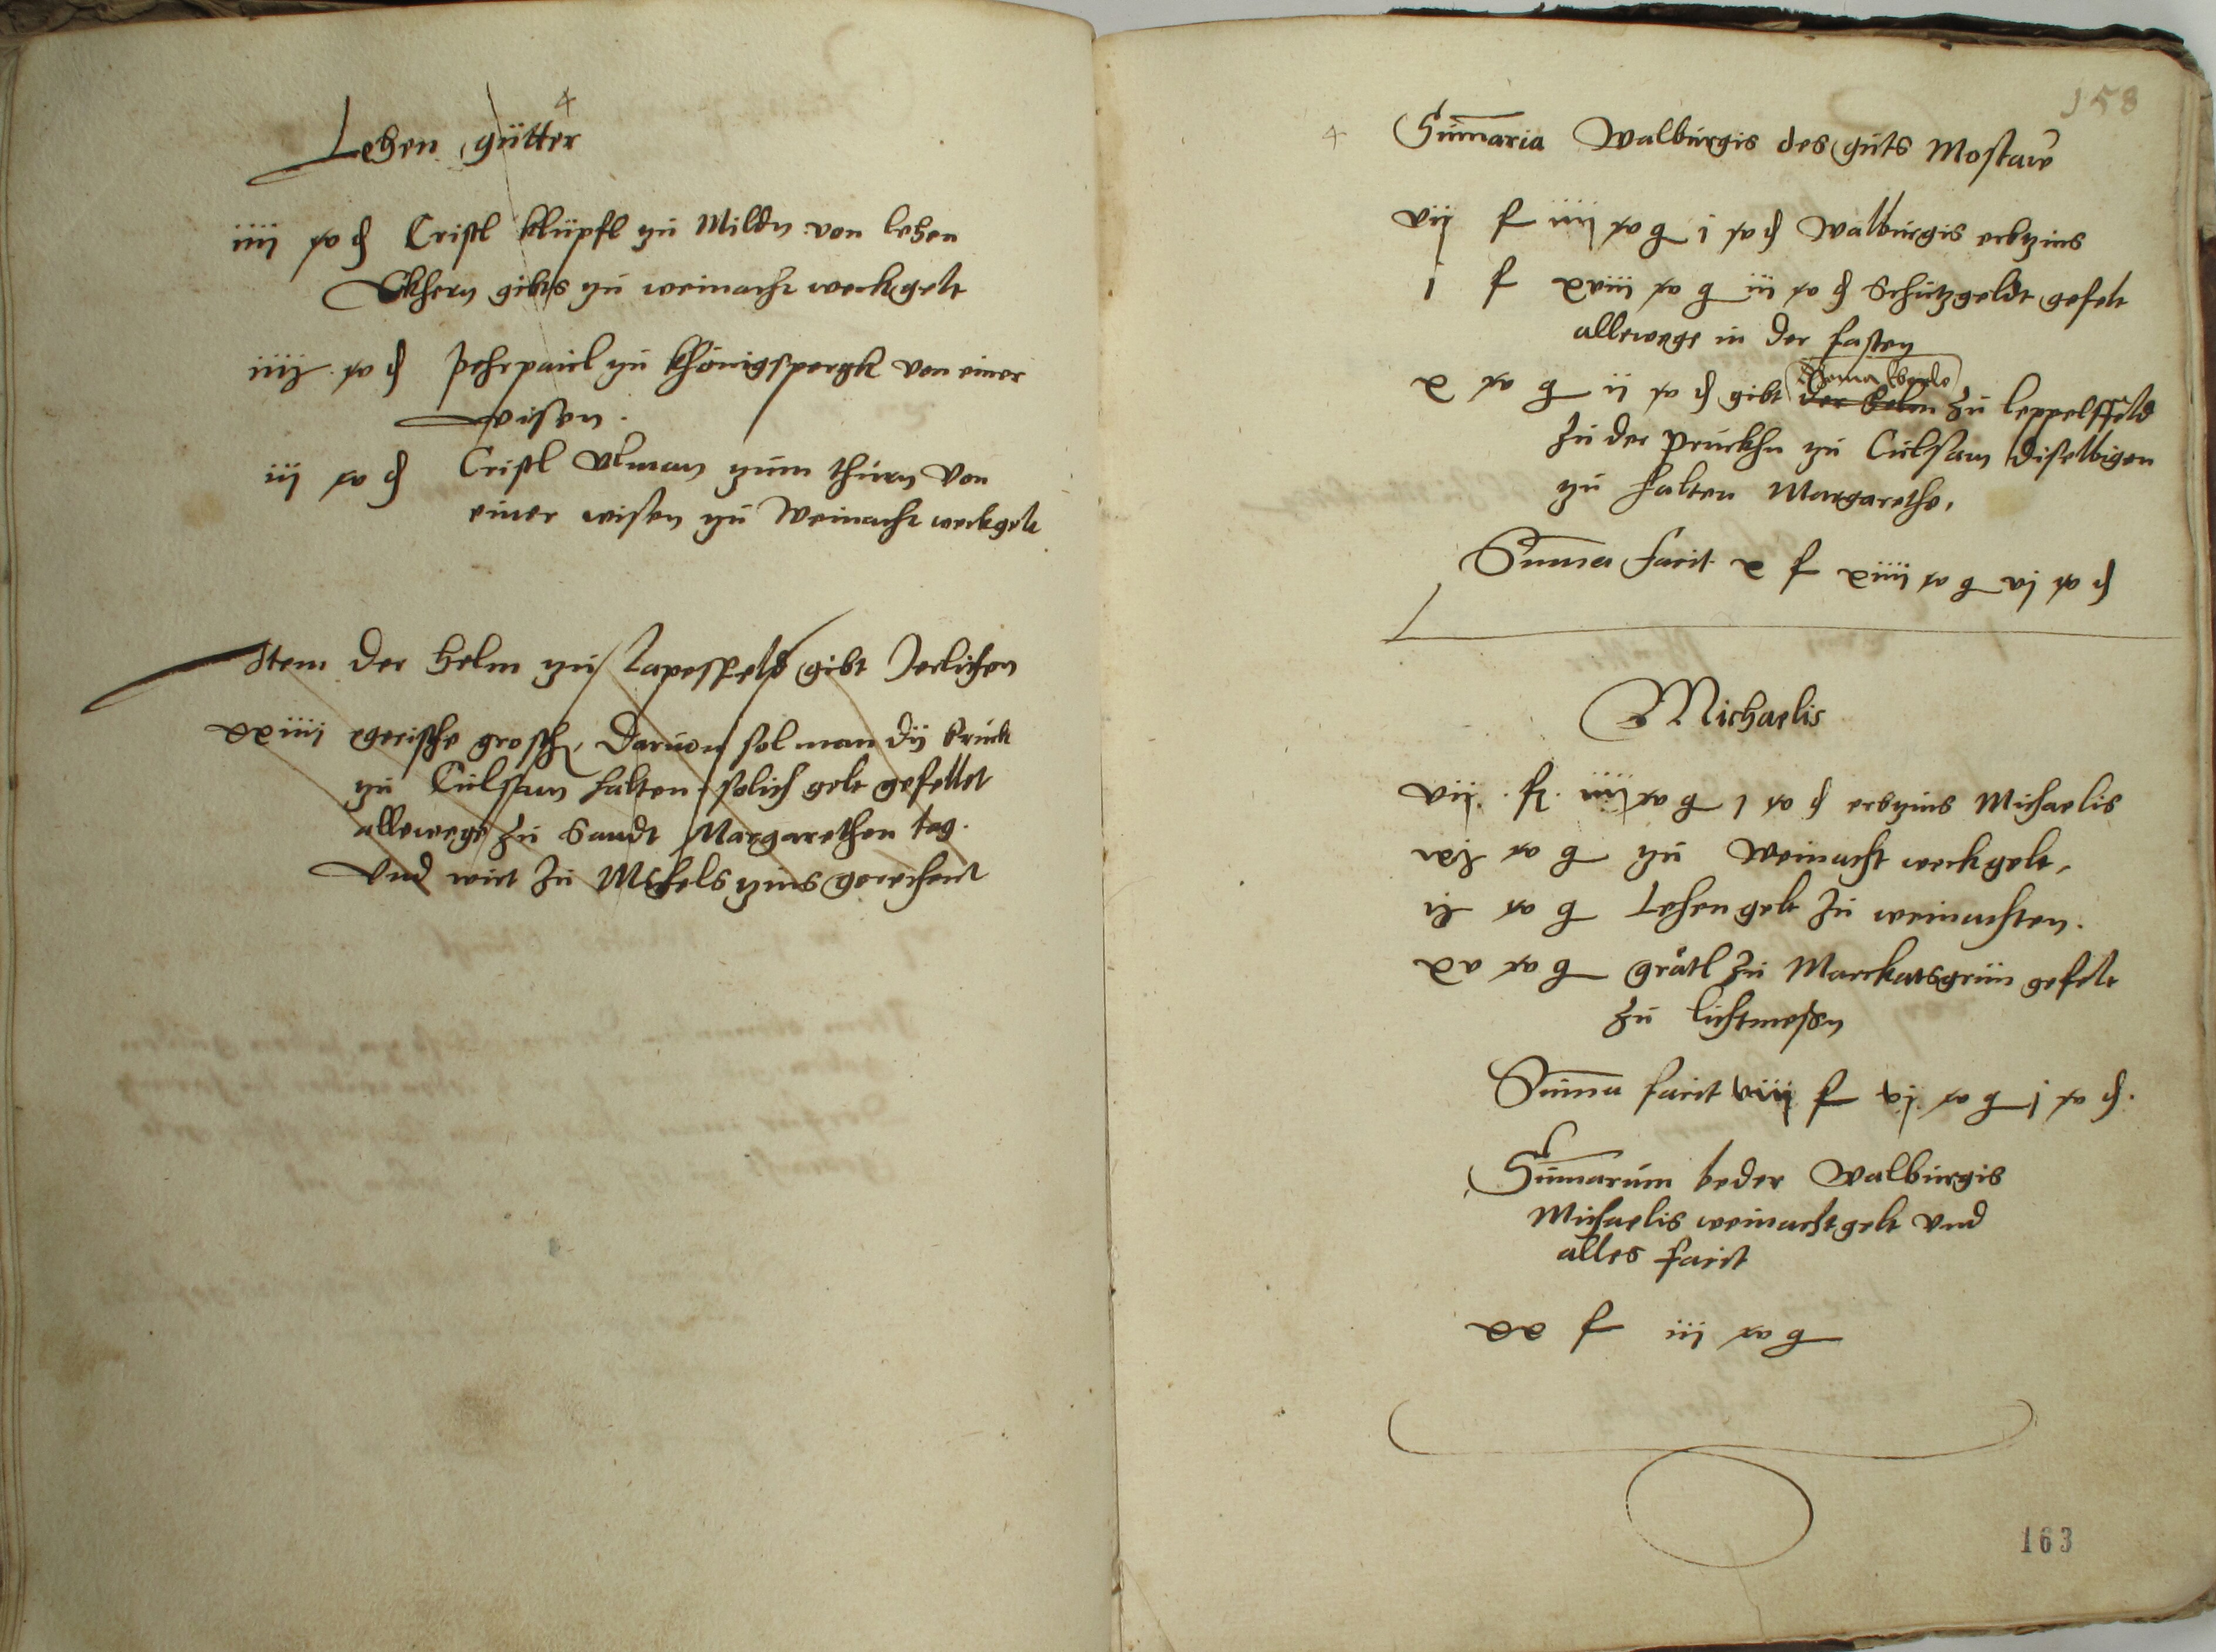 Lehen gütter
iiij ß ₰ Cristl klüpfl zu Mildn von lehen
Ekhern gibts zu weinacht weckgelt
iiij ß ₰ pehrpaul zu khönigspergk von einer
wisen.
iij ß ₰ Cristl Ulman zum thurn von
einer wisen zu Weinacht weckgelt
Item der helm zu Lapesfeld gibt Jerlichen
xxiiij egerische grosch, daruon sol man dy bruck
zu Culssam halten solich gelt gefellet
allewege zu Sandt Margarethen tag.
Vnd wirt zu Mchels zins gerechent
158
Sumaria Walburgis des guts Mostaw
vij f iiij ß g i ß ₰ Walburgis erbzins
i f xviij ß g iij ß ₰ Schutzgeldt gefelt
allewege in der fasten
x ß g ij ß ₰ gibt der helm zu leppelsfeld
zu der Pruckhn zu Culsam diselbigen
zu halten Margarethe.
Suma facit x f xiiij ß g vj ß ₰
Michaelis
vij f iiij ß g i ß ₰ erbzins Michaelis
ß g zu Weinacht weckgelt,
ß g Lehengelt zu weinachten.
xv ß g grätl zu Marckatsgrün gefelt
zu lichtmessn
Suma facit viij f vj ß g i ß ₰.
Sumarum beder Walburgis
Michaelis weinachtgelt vnd
alles facit
xx f iij ß g
163